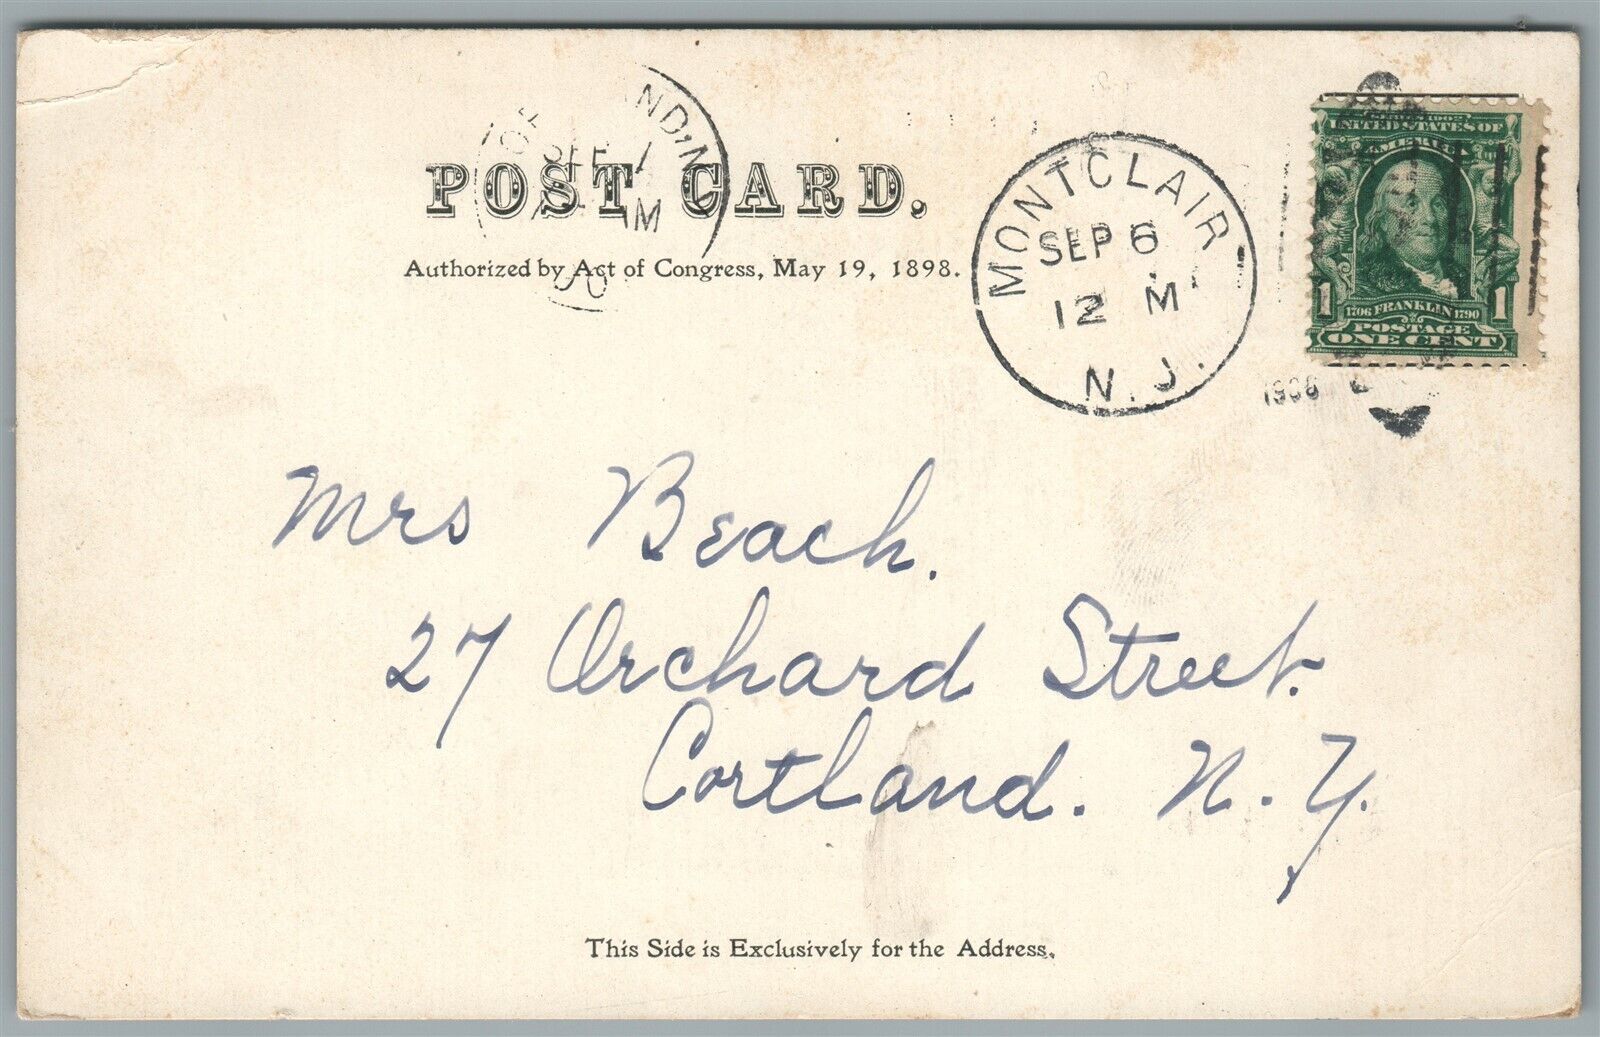 POST CARD.
Authorized by Act of Congress, May 19, 1898.
SEP 7
MONTCLAIR
SEP 6
12 M
N.J.
1906
UNITED STATES OF
AMERICA
1 1706 FRANKLIN 1790 1
POSTAGE
ONE CENT
Mrs Beach.
27 Orchard Street.
Cortland. N. Y.
This Side is Exclusively for the Address.